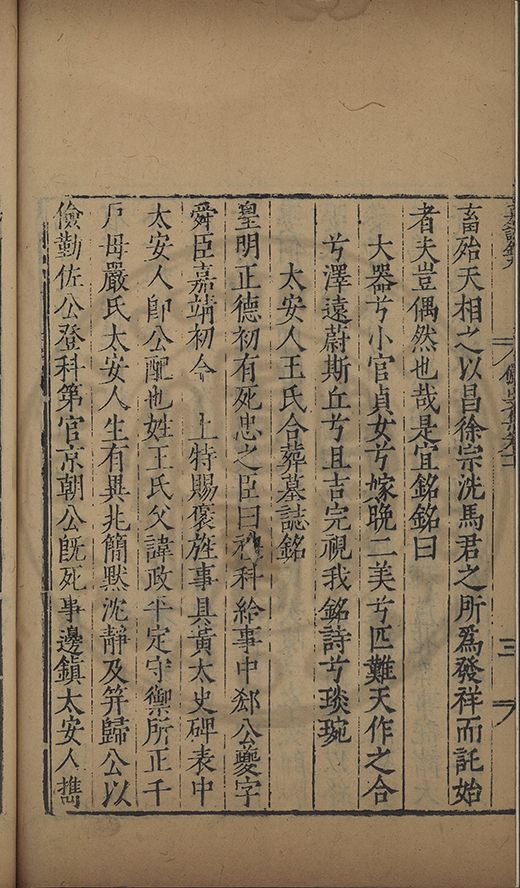 畜殆天相之以昌徐宗洗馬君之所爲發祥而託始
者夫豈偶然也哉是宜銘銘曰
大器兮小官貞女兮嫁晚二美兮匹難天作之合
兮澤遠蔚斯丘兮且吉完視我銘詩兮琰琬
太安人王氏合葬墓誌銘
皇明正德初有死忠之臣曰科給事中郄公夔字
舜臣嘉靖初今上特賜褒旌事具黃太史碑表中
太安人卽公配也姓王氏父諱政平定守禦所正千
戸母嚴氏太安人生有異兆簡默沈靜及笄歸公以
儉勤佐公登科第官京朝公旣死事邊鎮太安人擕